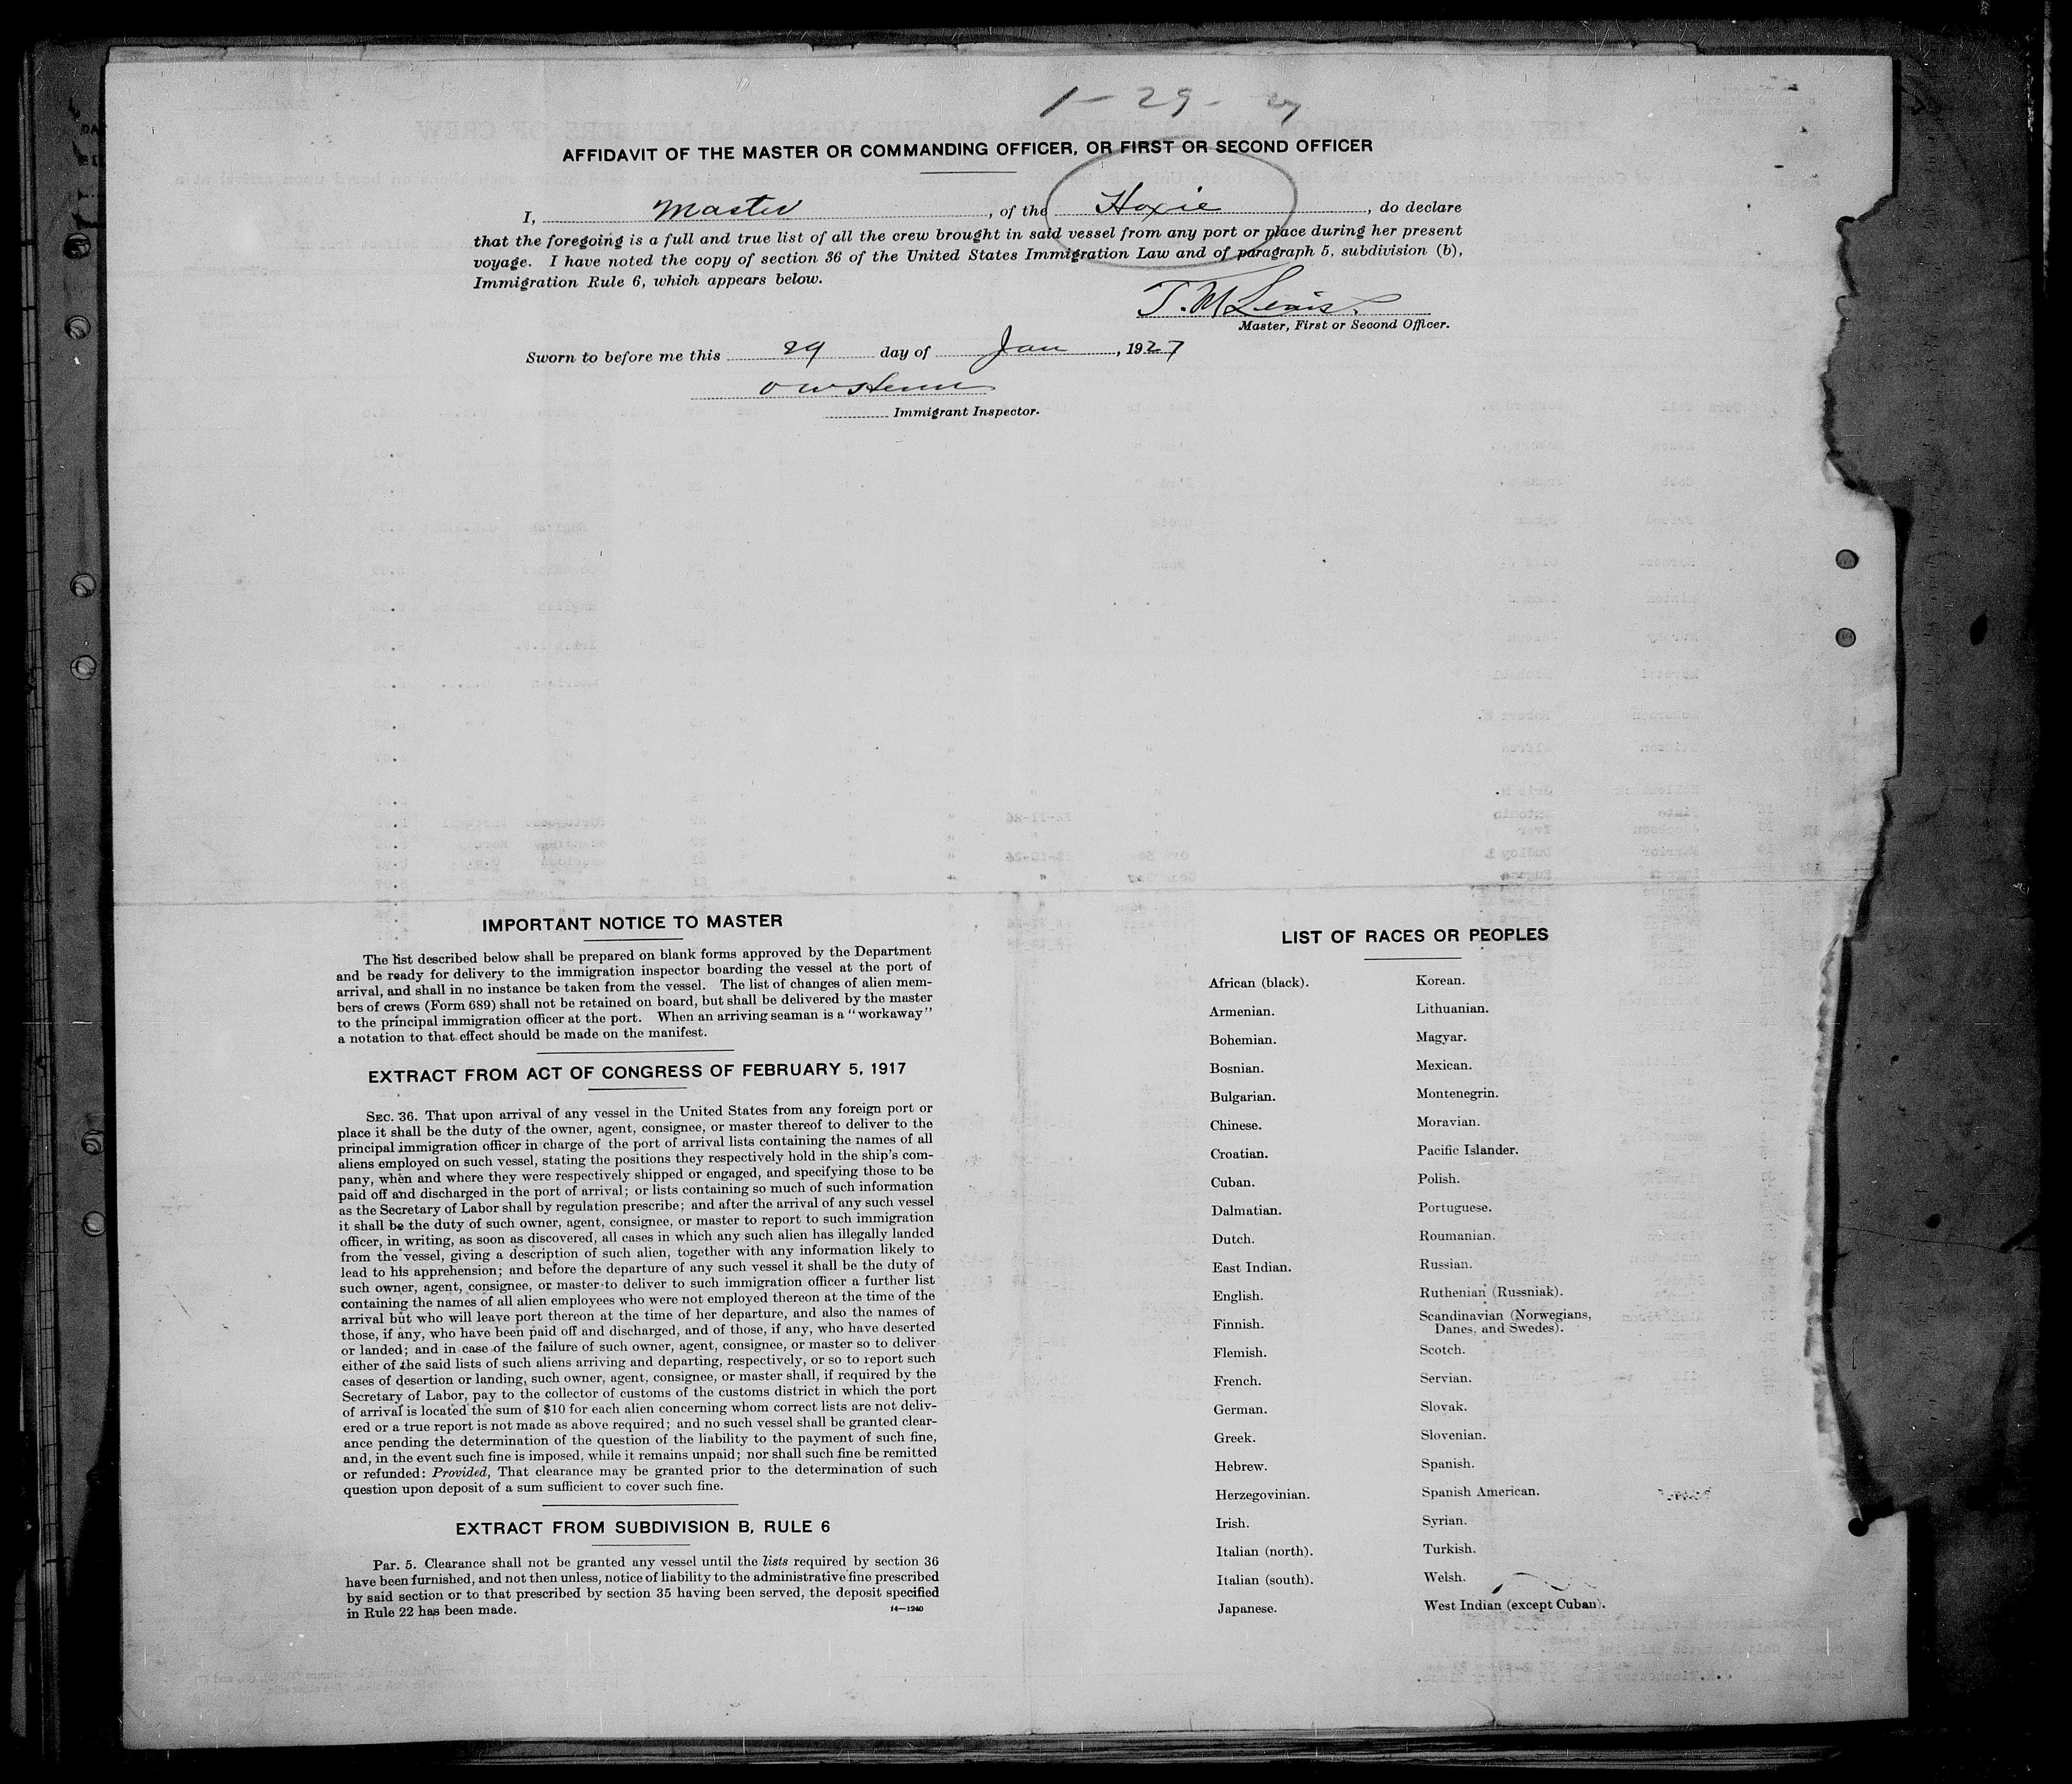 1-29-27
AFFIDAVIT OF THE MASTER OR COMMANDING OFFICER, OR FIRST OR SECOND OFFICER
I, Master, of the Hoxie, do declare
that the foregoing is a full and true list of all the crew brought in said vessel from any port or place during her present
voyage. I have noted the copy of section 36 of the United States Immigration Law and of paragraph 5, subdivision (b),
Immigration Rule 6, which appears below.
T. M Lewis
Master, First or Second Officer.
Sworn to before me this 29 day of Jan, 1927
Immigrant Inspector.
IMPORTANT NOTICE TO MASTER
The list described below shall be prepared on blank forms approved by the Department
and be ready for delivery to the immigration inspector boarding the vessel at the port of
arrival, and shall in no instance be taken from the vessel. The list of changes of alien mem-
bers of crews (Form 689) shall not be retained on board, but shall be delivered by the master
to the principal immigration officer at the port. When an arriving seaman is a "workaway"
a notation to that effect should be made on the manifest.
EXTRACT FROM ACT OF CONGRESS OF FEBRUARY 5, 1917
SEC. 36. That upon arrival of any vessel in the United States from any foreign port or
place it shall be the duty of the owner, agent, consignee, or master thereof to deliver to the
principal immigration officer in charge of the port of arrival lists containing the names of all
aliens employed on such vessel, stating the positions they respectively hold in the ship's com-
pany, when and where they were respectively shipped or engaged, and specifying those to be
paid off and discharged in the port of arrival; or lists containing so much of such information
as the Secretary of Labor shall by regulation prescribe; and after the arrival of any such vessel
it shall be the duty of such owner, agent, consignee, or master to report to such immigration
officer, in writing, as soon as discovered, all cases in which any such alien has illegally landed
from the vessel, giving a description of such alien, together with any information likely to
lead to his apprehension; and before the departure of any such vessel it shall be the duty of
such owner, agent, consignee, or master to deliver to such immigration officer a further list
containing the names of all alien employees who were not employed thereon at the time of the
arrival but who will leave port thereon at the time of her departure, and also the names of
those, if any, who have been paid off and discharged, and of those, if any, who have deserted
or landed; and in case of the failure of such owner, agent, consignee, or master so to deliver
either of the said lists of such aliens arriving and departing, respectively, or so to report such
cases of desertion or landing, such owner, agent, consignee, or master shall, if required by the
Secretary of Labor, pay to the collector of customs of the customs district in which the port
of arrival is located the sum of $10 for each alien concerning whom correct lists are not deliv-
ered or a true report is not made as above required; and no such vessel shall be granted clear-
ance pending the determination of the question of the liability to the payment of such fine,
and, in the event such fine is imposed, while it remains unpaid; nor shall such fine be remitted
or refunded: Provided, That clearance may be granted prior to the determination of such
question upon deposit of a sum sufficient to cover such fine.
EXTRACT FROM SUBDIVISION B, RULE 6
Par. 5. Clearance shall not be granted any vessel until the lists required by section 36
have been furnished, and not then unless, notice of liability to the administrative fine prescribed
by said section or to that prescribed by section 35 having been served, the deposit specified
in Rule 22 has been made.
14—1240
LIST OF RACES OR PEOPLES
African (black).
Armenian.
Bohemian.
Bosnian.
Bulgarian.
Chinese.
Croatian.
Cuban.
Dalmatian.
Dutch.
East Indian.
English.
Finnish.
Flemish.
French.
German.
Greek.
Hebrew.
Herzegovinian.
Irish.
Italian (north).
Italian (south).
Japanese.
Korean.
Lithuanian.
Magyar.
Mexican.
Montenegrin.
Moravian.
Pacific Islander.
Polish.
Portuguese.
Roumanian.
Russian.
Ruthenian (Russniak).
Scandinavian (Norwegians,
Danes, and Swedes).
Scotch.
Servian.
Slovak.
Slovenian.
Spanish.
Spanish American.
Syrian.
Turkish.
Welsh.
West Indian (except Cuban).